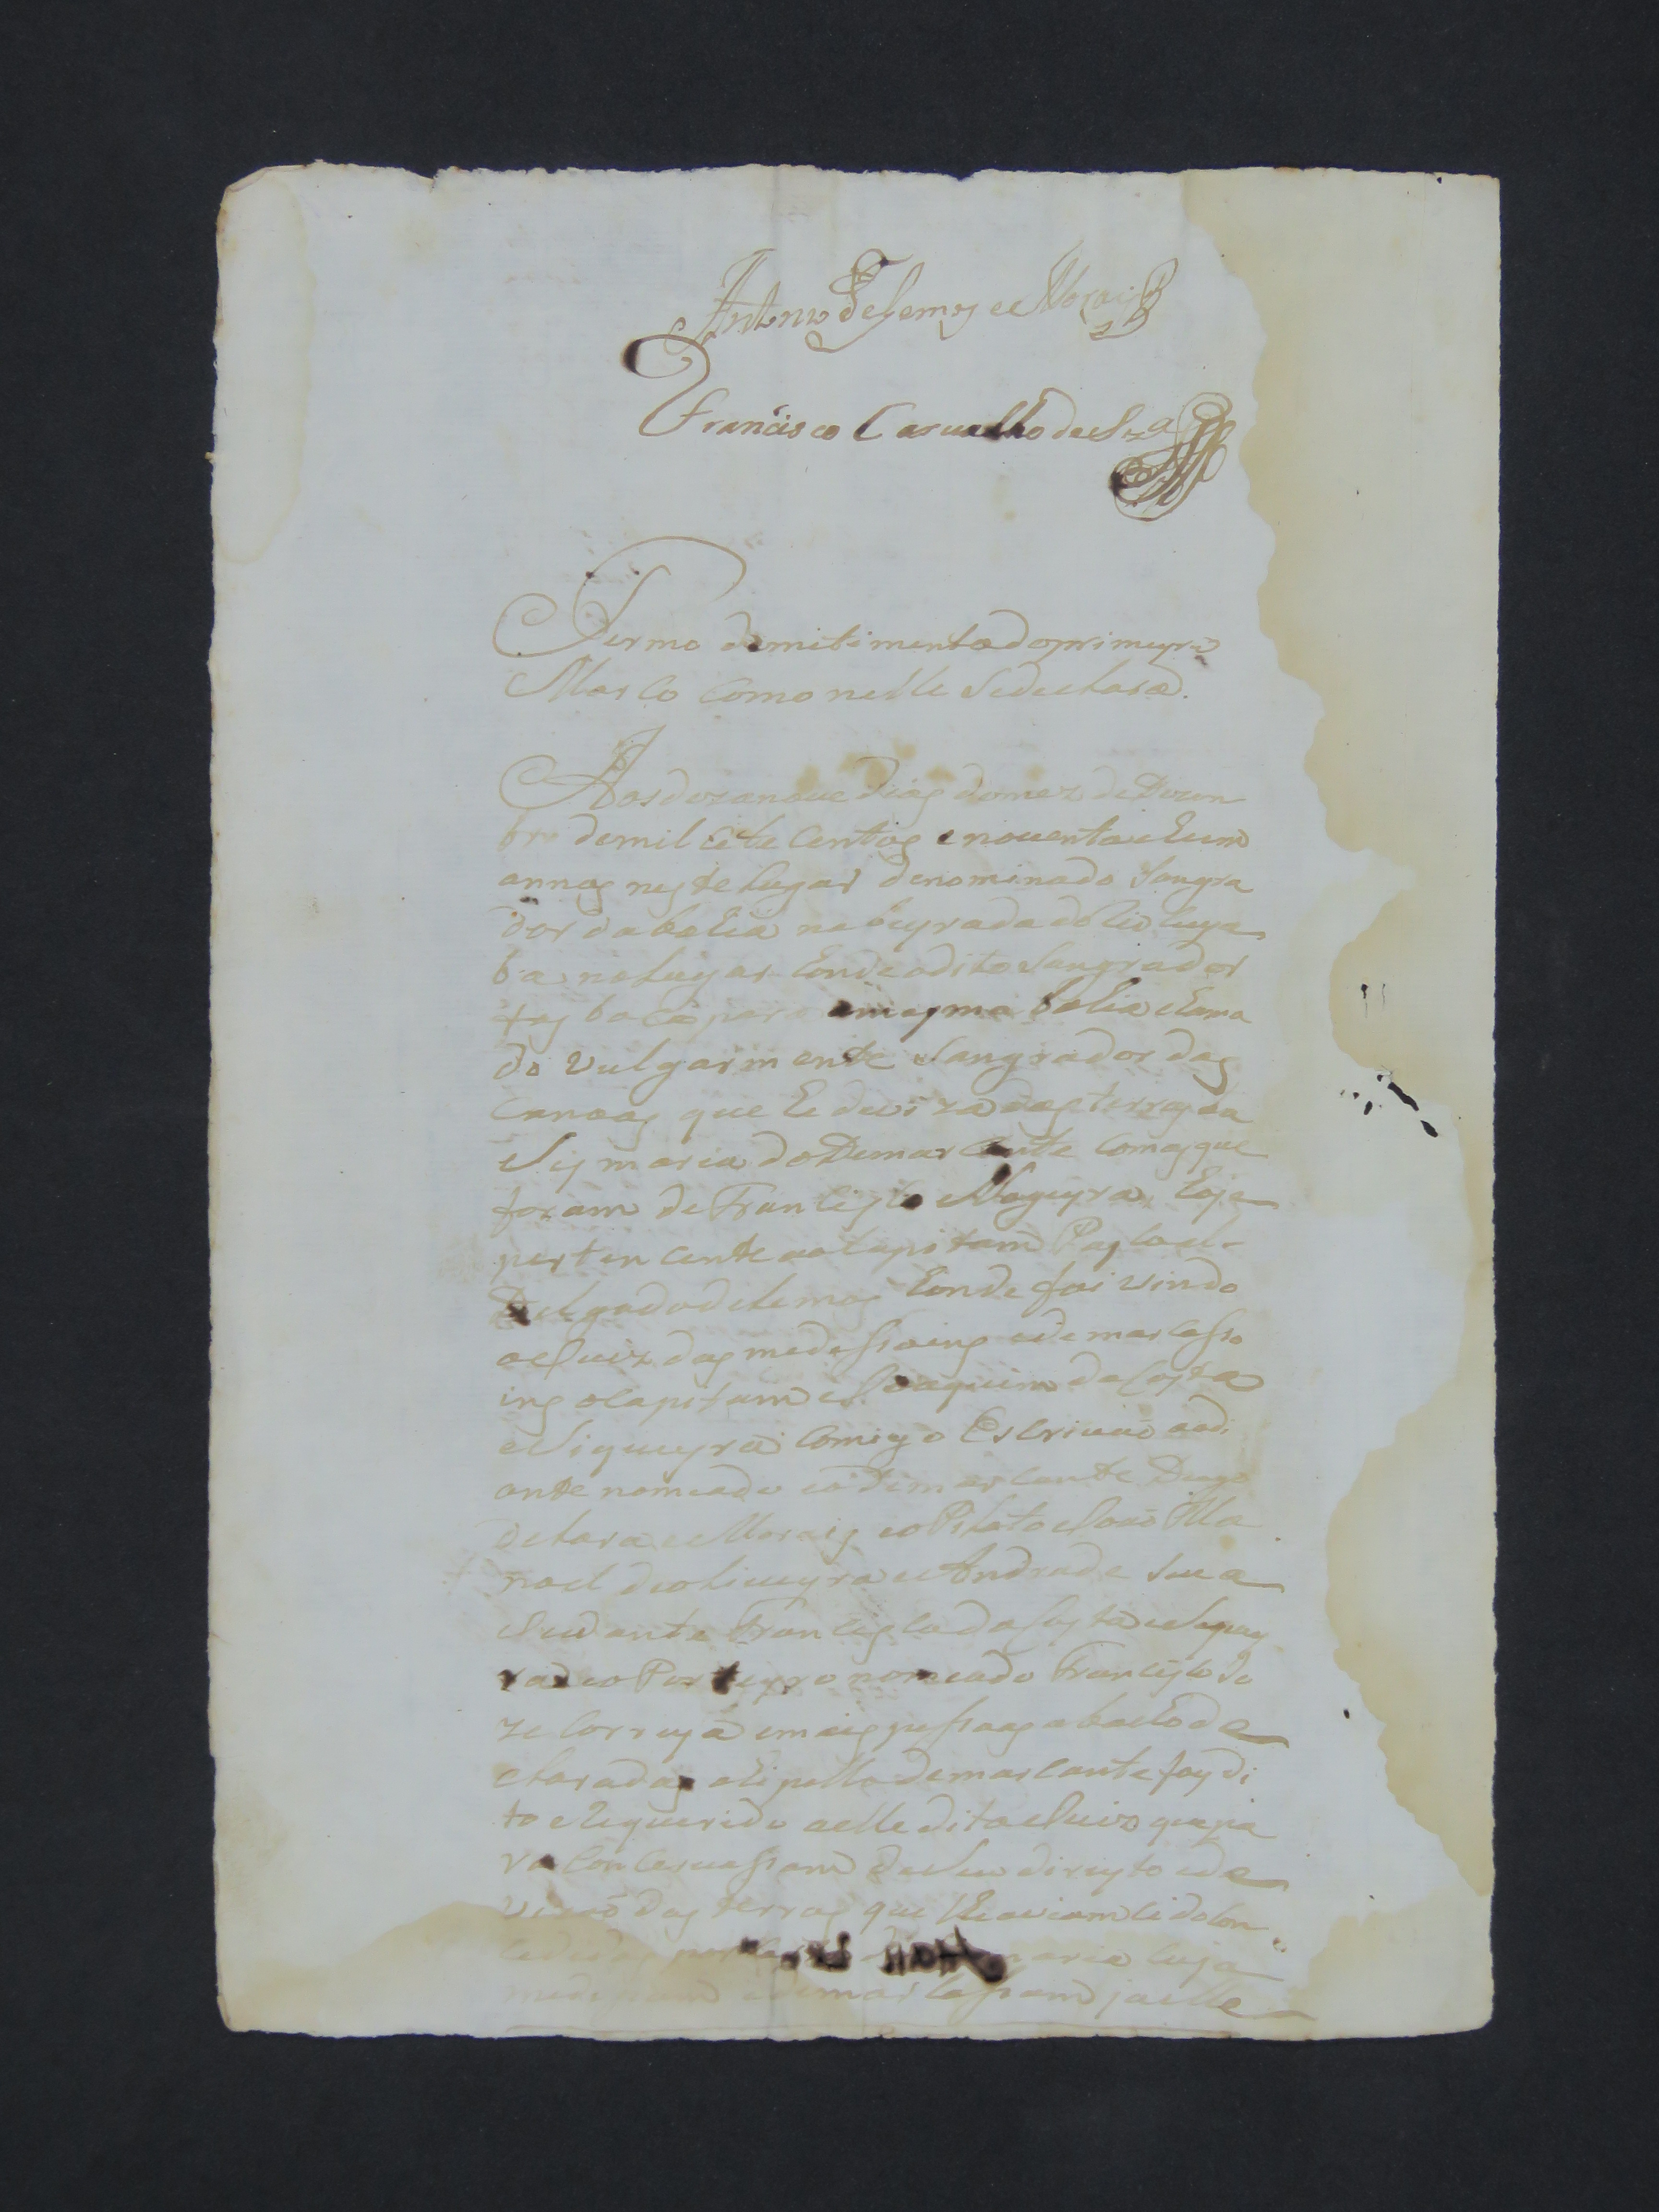 Antonio de Lemos e Morais
Francisco Carvalho de Sza
Termo demitimento do primeyro
Marco como nelle sedeclara.
Aos dozanove dias domez de Dezem
bro demil cete centos e noventa e hum
annos neste lugar denominado Sangra
dor dabahia na beyrada do Rio Cuya
ba no lugar honde o dito Sangrador
fas barra para amesma bahia chama
do vulgarmente Sangrador das
Canoas que he deviza das terras da
Sismaria do Demarcante com as que
foram de Francisco Nogueyra, hoje
pertencente ao Capitam Pascoal
Delgado de Lemos honde foi vindo
o Juiz das medissoins e demarcasso
ins o Capitam Joaquim da Costa
e Siqueyra comigo Escrivão aodi
ante nomeado e o Demarcante Diogo
de Lara e Morais e o Piloto João Ma
noel de oliveyra e Andrade seu a
judante Francisco da Costa e Sequey
ra e o Porteyro nomeado Francisco Jo
ze Correya e mais pessoas abacho de
claradas ahi pello demarcante foy di
to e Requerido aelle dito Juiz que pa
ra concervassam de seu direyto e de
vizão das terras que lhe aviam cido con
cedidas por
maria cuja
medissam e demarcassam ja elle